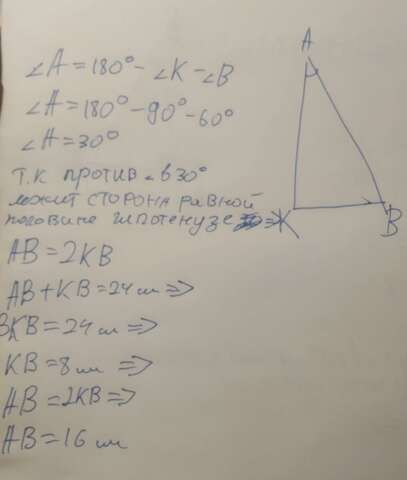 ∠A = 180° - ∠K - ∠B
∠A = 180° - 90° - 60°
∠A = 30°
т.к против ∠ в 30°
лежит сторона равной
половине гипотенузе =>
AB = 2KB
AB + KB = 24 см =>
3KB = 24 см =>
KB = 8 см =>
AB = 2KB =>
AB = 16 см
A
K
B